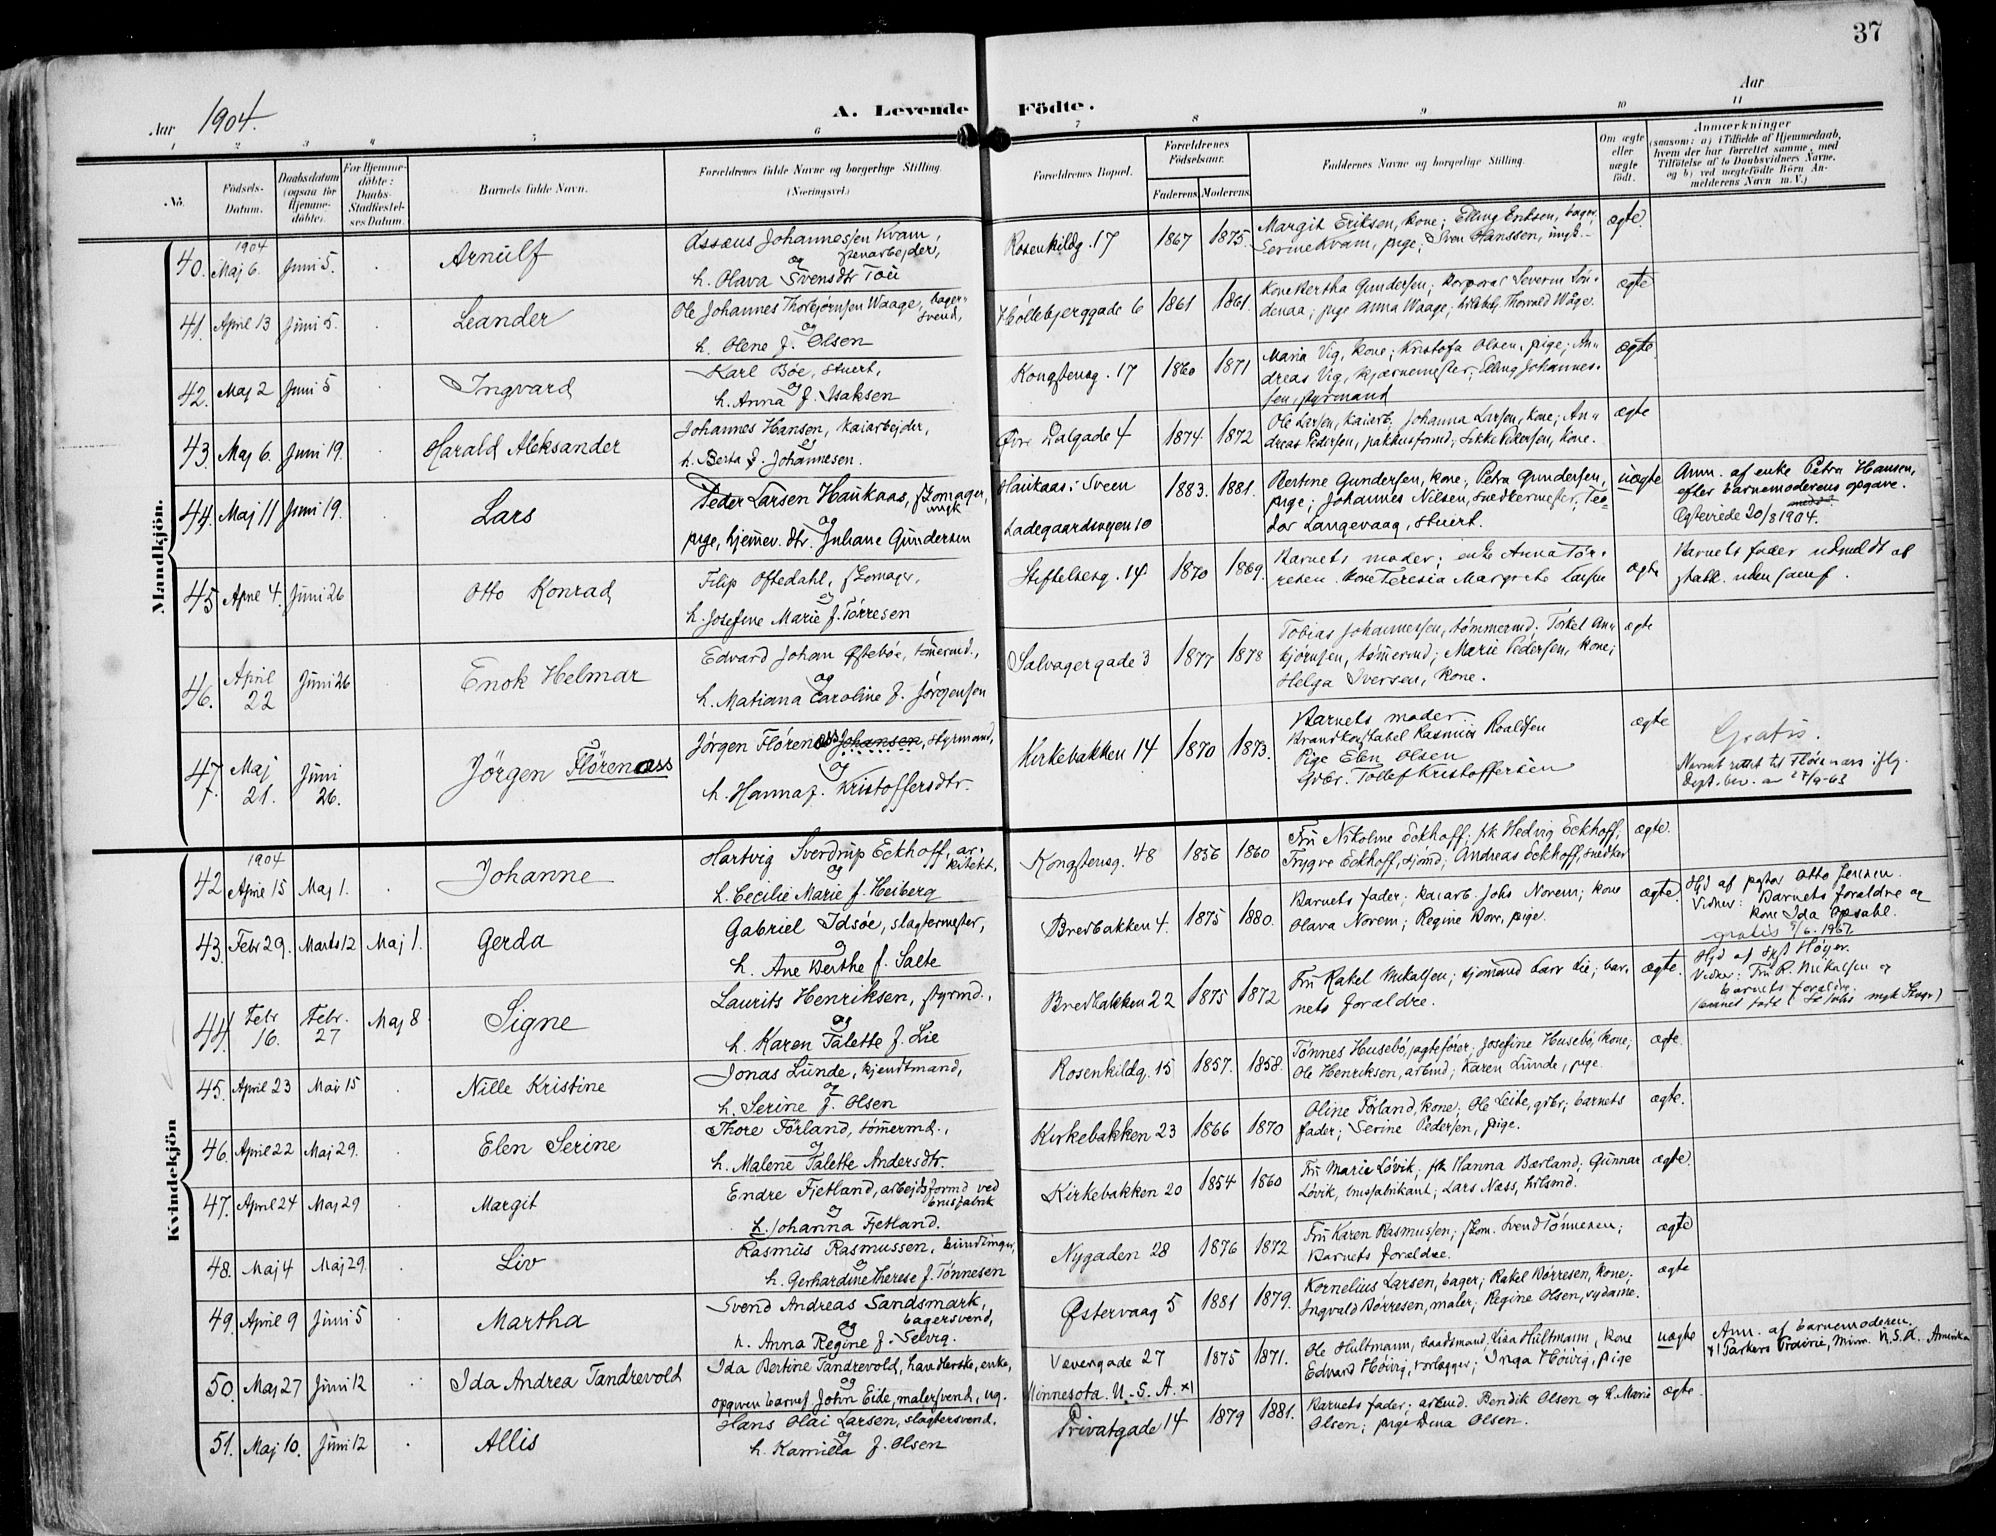 37
Aar 1904. A. Levende Födte. Aar
1 2 3 4 5 6 7 8 9 10 11
No. Födsels-Datum. Daabsdatum (ogsaa for Hjemme-döbte). For Hjemme-döbte: Daabs-Stadfæstel-ses Datum. Barnets fulde Navn. Forældrenes fulde Navne og borgerlige Stilling. (Næringsvei.) Forældrenes Bopæl. Forældrenes Födselsaar. Faderens Moderens Faddernes Navne og borgerlige Stilling. Om ægte eller uægte födt. Anmærkninger (saasom: a) i Tilfælde af Hjemmedaab, hvem der har forrettet samme, med Tilföielse af to Daabsvidners Navne, og b) ved uægtefödte Börn An-melderens Navn m. V.)
Mandkjön.
1904
40. Maj 6. Juni 5. Arnulf Assæus Johannessen Kvam, stenarbejder,
og
h. Olava Svensdtr Tou
Rosenkildg. 17 1867 1875. Margit Eriksen, kone; Elling Eriksen, bager,
Serine Kvam, pige; Sven Hanssen, ungk.
ægte.
41. April 13 Juni 5. Leander Ole Johannes Thorbjørnsen Waage, bager-svend,
og
h. Olene f. Olsen
Høllebjerggade 6 1861 1861. Kone Bertha Gundersen; Korporal Severin
denaa; pige Anna Waage; Thorvald Wåge.
ægte
42. Maj 2 Juni 5 Ingvard Karl Bøe, stuert,
og
h. Anna f. Isaksen
Kongstensg. 17 1860 1871 Maria Vig, kone; Kristofa Olsen, pige; An-
dreas Vig, kjærnemester; Elling Johannes-
sen, styrmand
ægte.
43. Maj 6. Juni 19. Harald Aleksander Johannes Hansen, kaiarbejder,
og
h. Berta f. Johannesen.
Øvre Dalgade 4 1874. 1872 Ole Larsen, kaiarb. Johanna Larsen, kone; An-
dreas Pedersen, pakhusformd; Sikke Pedersen, kone.
ægte
44. Maj 11 Juni 19. Lars Peder Larsen Haukaas, skomager, ungk
og
pige, hjemmev. dtr. Juliane Gundersen
Haukaas i Sveen
Ladegaardsvejen 10
1883. 1881. Bertine Gundersen, kone; Petra Gundersen,
pige; Johannes Nilsen, snedkermester; Teo-
dor Langevaag, stuert.
uægte Anm. af enke Petra Hansen,
efter barnemoderens opgave.
Ægteviede 20/8 1904.
45. April 4. Juni 26 Otto Konrad Filip Oftedahl, skomager,
og
h. Josefine Marie f. Tørresen
Stiftelsesg. 14 1870 1869. Barnets moder; enke Anna Tør-
resen. kone Teresia Margrete Larsen
ægte Barnets fader udmeldt af
statk. uden samf.
46. April 22 Juni 26 Enok Helmar Edvard Johan Østebøe, tømermd.,
og
h. Matiana Caroline f. Jørgensen
Salvagergade 3 1877 1878 Tobias Johannessen, tømmermd; Torkel An-
bjørnsen, tømermd; Marie Pedersen, kone;
Helga Iversen, kone.
ægte
47. Maj 21. Juni 26. Jörgen Florenæss Jørgen Florenæss Johansen, styrmand,
og
h. Hanna f. Kristoffersdtr.
Kirkebakken 14 1870 1873. Barnets moder.
Brandkonstabel Rasmus Roaldsen
Pige Elen Olsen
Grbr. Tollef Kristoffersen
ægte Gratis.
Navnet rettet til Florenæss iflg.
Dept. bev. av 27/9-63
Kvindekjön
1904
42 April 15 Maj 1. Johanne Hartvig Sverdrup Eckhoff, ar-kitekt,
og
h. Cecilie Marie f. Heiberg
Kongstensg. 48 1856 1860 Fru Nikoline Eckhoff; frk Hedvig Eckhoff;
Trygve Eckhoff, sjømd; Andreas Eckhoff, snedker
ægte.
43. Febr 29. Marts 12 Maj 1. Gerda Gabriel Idsøe, slagtermester,
og
h. Ane Berthe f. Salte
Bredbakken 4. 1875 1880. Barnets fader; kaiarb Johs Norem; kone
Olava Norem; Regine Bore, pige.
ægte. Hjd af pastor Otto Jensen.
Vidner: Barnets forældre og
kone Ida Opsahl.
gratis 9/6. 1967.
44. Febr 16. Febr. 27 Maj 8 Signe Laurits Henriksen, styrmd.,
og
h. Karen Talette f. Lie
Bredbakken 22 1875 1872 Fru Rakel Mikalsen; sjømand Lars Lie; bar-
nets forældre.
ægte. Hjd af Høyer.
Vidner: Fru R. Mikalsen og
barnets forældre.
45. April 23 Mai 15 Nille Kristine Jonas Lunde, kjendtmand,
og
h. Serine f. Olsen
Rosenkildg. 15 1857. 1858. Tønnes Husebø, jagtefører; Josefine Husebø, kone;
Ole Henriksen, arbmd; Karen Lunde, pige.
ægte.
46. April 22 Maj 29. Elen Serine Thore Förland, tømermd.,
og
h. Malene Talette Andersdtr.
Kirkebakken 23 1866 1870 Oline Førland, kone; Ole Leite, grbr; barnets
fader; Serine Pedersen, pige.
ægte.
47. April 24 Maj 29 Margit Endre Fjetland, arbejdsformd ved brusfabrik
og
h. Johanna Fjetland.
Kirkebakken 20 1854 1860 Fru Marie Løvik; frk Hanna Bærland; Gunnar
Løvik, brusfabrikant; Lars Næss,
ægte.
48. Maj 4 Maj 29. Liv Rasmus Rasmussen, bundtmager,
og
h. Gerhardine Therese f. Tønnesen
Nygaden 28 1876 1872 Fru Karen Rasmussen; skom. Svend Tønnesen;
Barnets forældre.
ægte
49. April 9 Juni 5 Martha Svend Andreas Sandsmark, bagersvend,
og
h. Anna Regine f. Selvig.
Østervaag 5 1881 1879. Kornelius Larsen, bager; Rakel Børresen, kone;
Ingvald Børresen, maler; Regine Olsen, sydame.
ægte
50. Maj 27 Juni 12 Ida Andrea Tandrevold Ida Bertine Tandrevold, handlerske, enke,
og
opgiven barnef John Eide, malersvend, ug.
Vævergade 27
Minnesota. U. S. A. x)
1875 1871. Ole Hultmann, baadsmand, Lisa Hultmann, kone
Edvard Høivig, forlægger; Inga Høivig, pige
uægte Anm. af barnemoderen.
x) Parkers Prairie, Minn. U.S.A. Amerika
51. Maj 10. Juni 12 Allis Hans Olai Larsen, slagtersvend,
og
h. Kamilla f. Olsen
Privatgade 14 1879 1881. Barnets fader; arbmd. Bendik Olsen og h. Marie
Olsen; pige Dena Olsen.
ægte.